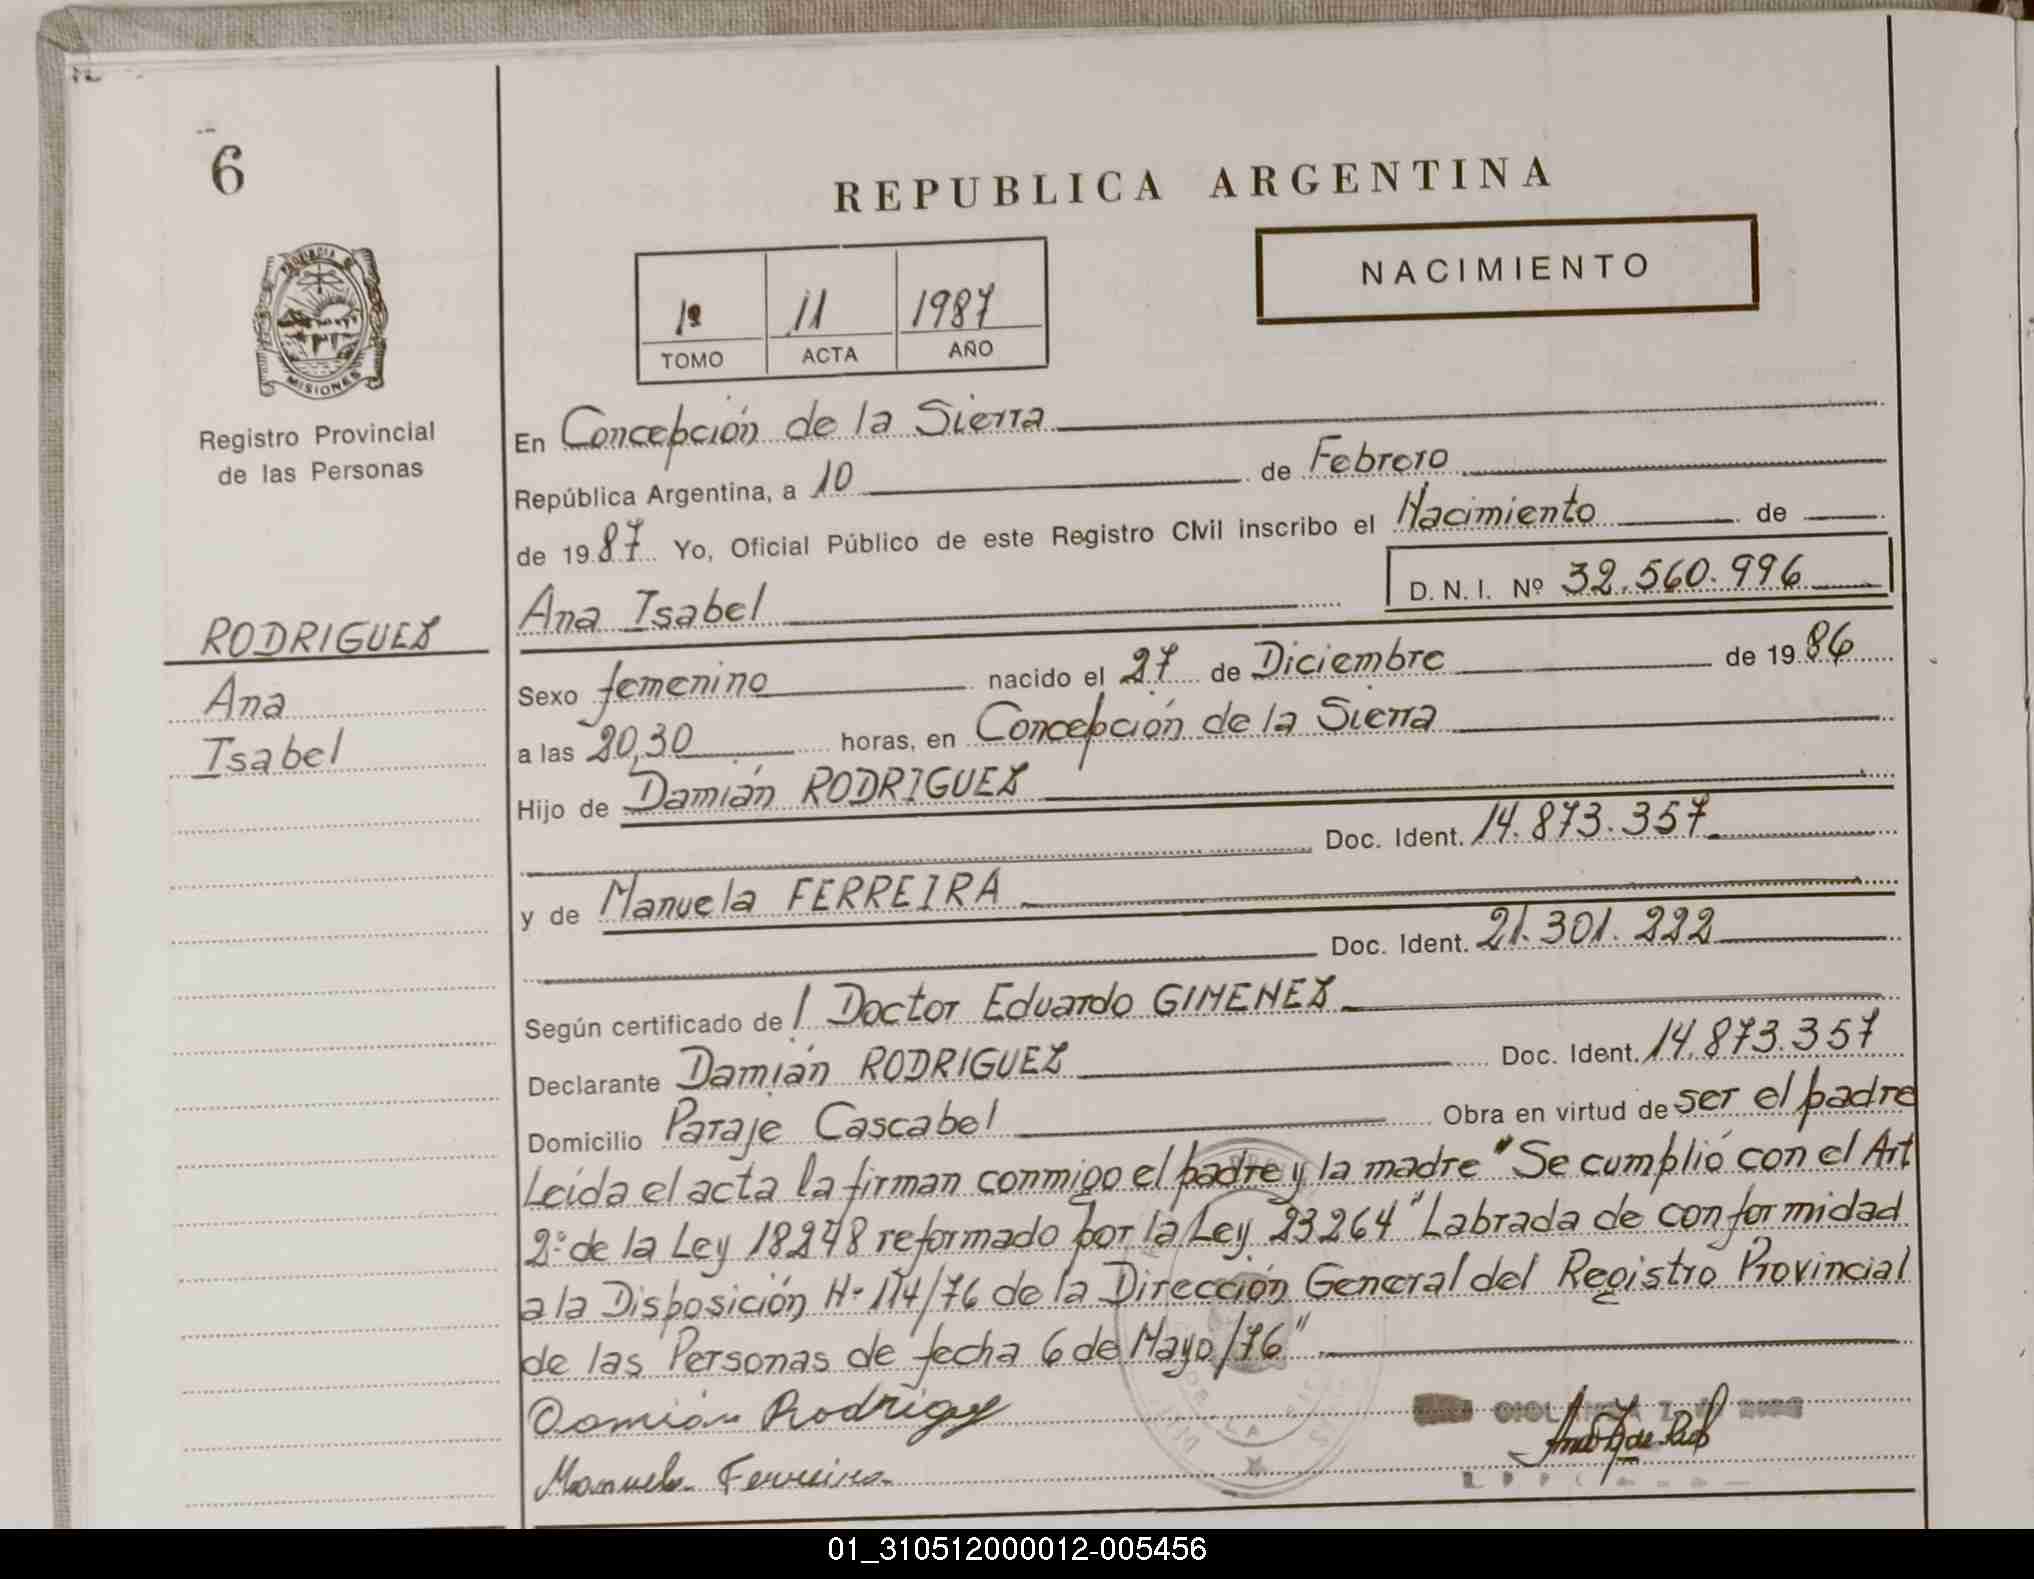 6
REPUBLICA ARGENTINA
NACIMIENTO
PROVINCIA DE
MISIONES
1º 11 1987
TOMO ACTA AÑO
Registro Provincial
de las Personas
En Concepción de la Sierra
República Argentina, a 10 de Febrero
de 1987 Yo, Oficial Público de este Registro Civil inscribo el Nacimiento de
Ana Isabel D. N. I. Nº 32.560.996
RODRIGUEZ
Ana
Isabel
Sexo femenino nacido el 27 de Diciembre de 1986
a las 20,30 horas, en Concepción de la Sierra
Hijo de Damián RODRIGUEZ
Doc. Ident. 14.873.357
y de Manuela FERREIRA
Doc. Ident. 21.301.222
Según certificado de l Doctor Eduardo GIMENEZ
Declarante Damián RODRIGUEZ Doc. Ident. 14.873.357
Domicilio Paraje Cascabel Obra en virtud de ser el padre
Leída el acta la firman conmigo el padre y la madre "Se cumplió con el Art
2º de la Ley 18248 reformado por la Ley 23264" Labrada de conformidad
a la Disposición N- 114/76 de la Dirección General del Registro Provincial
de las Personas de fecha 6 de Mayo/76"
Damián Rodriguez
Manuela Ferreira
01_310512000012-005456